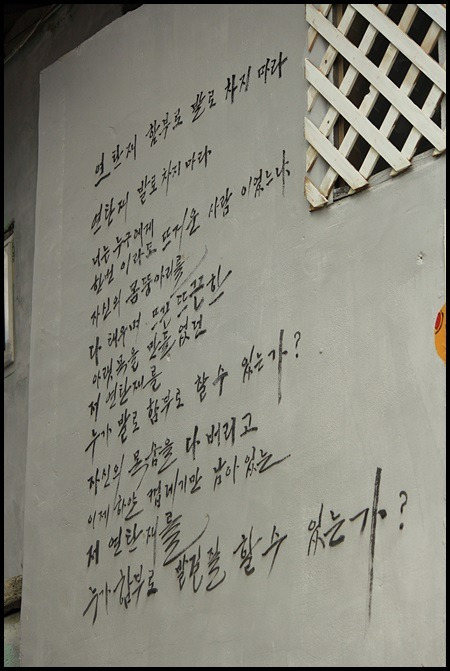 연탄재 함부로 발로 차지 마라
연탄재 발로 차지 마라.
너는 누구에게
한번 이라도 뜨거운 사람 이었느냐
자신의 몸뚱아리를
다 태우며 뜨끈 뜨끈한
아랫목을 만들었던
저 연탄재를
누가 발로 함부로 할 수 있는가?
자신의 목숨을 다 버리고
이제 하얀 껍데기만 남아있는
저 연탄재를
누가 함부로 발길질 할 수 있는가?